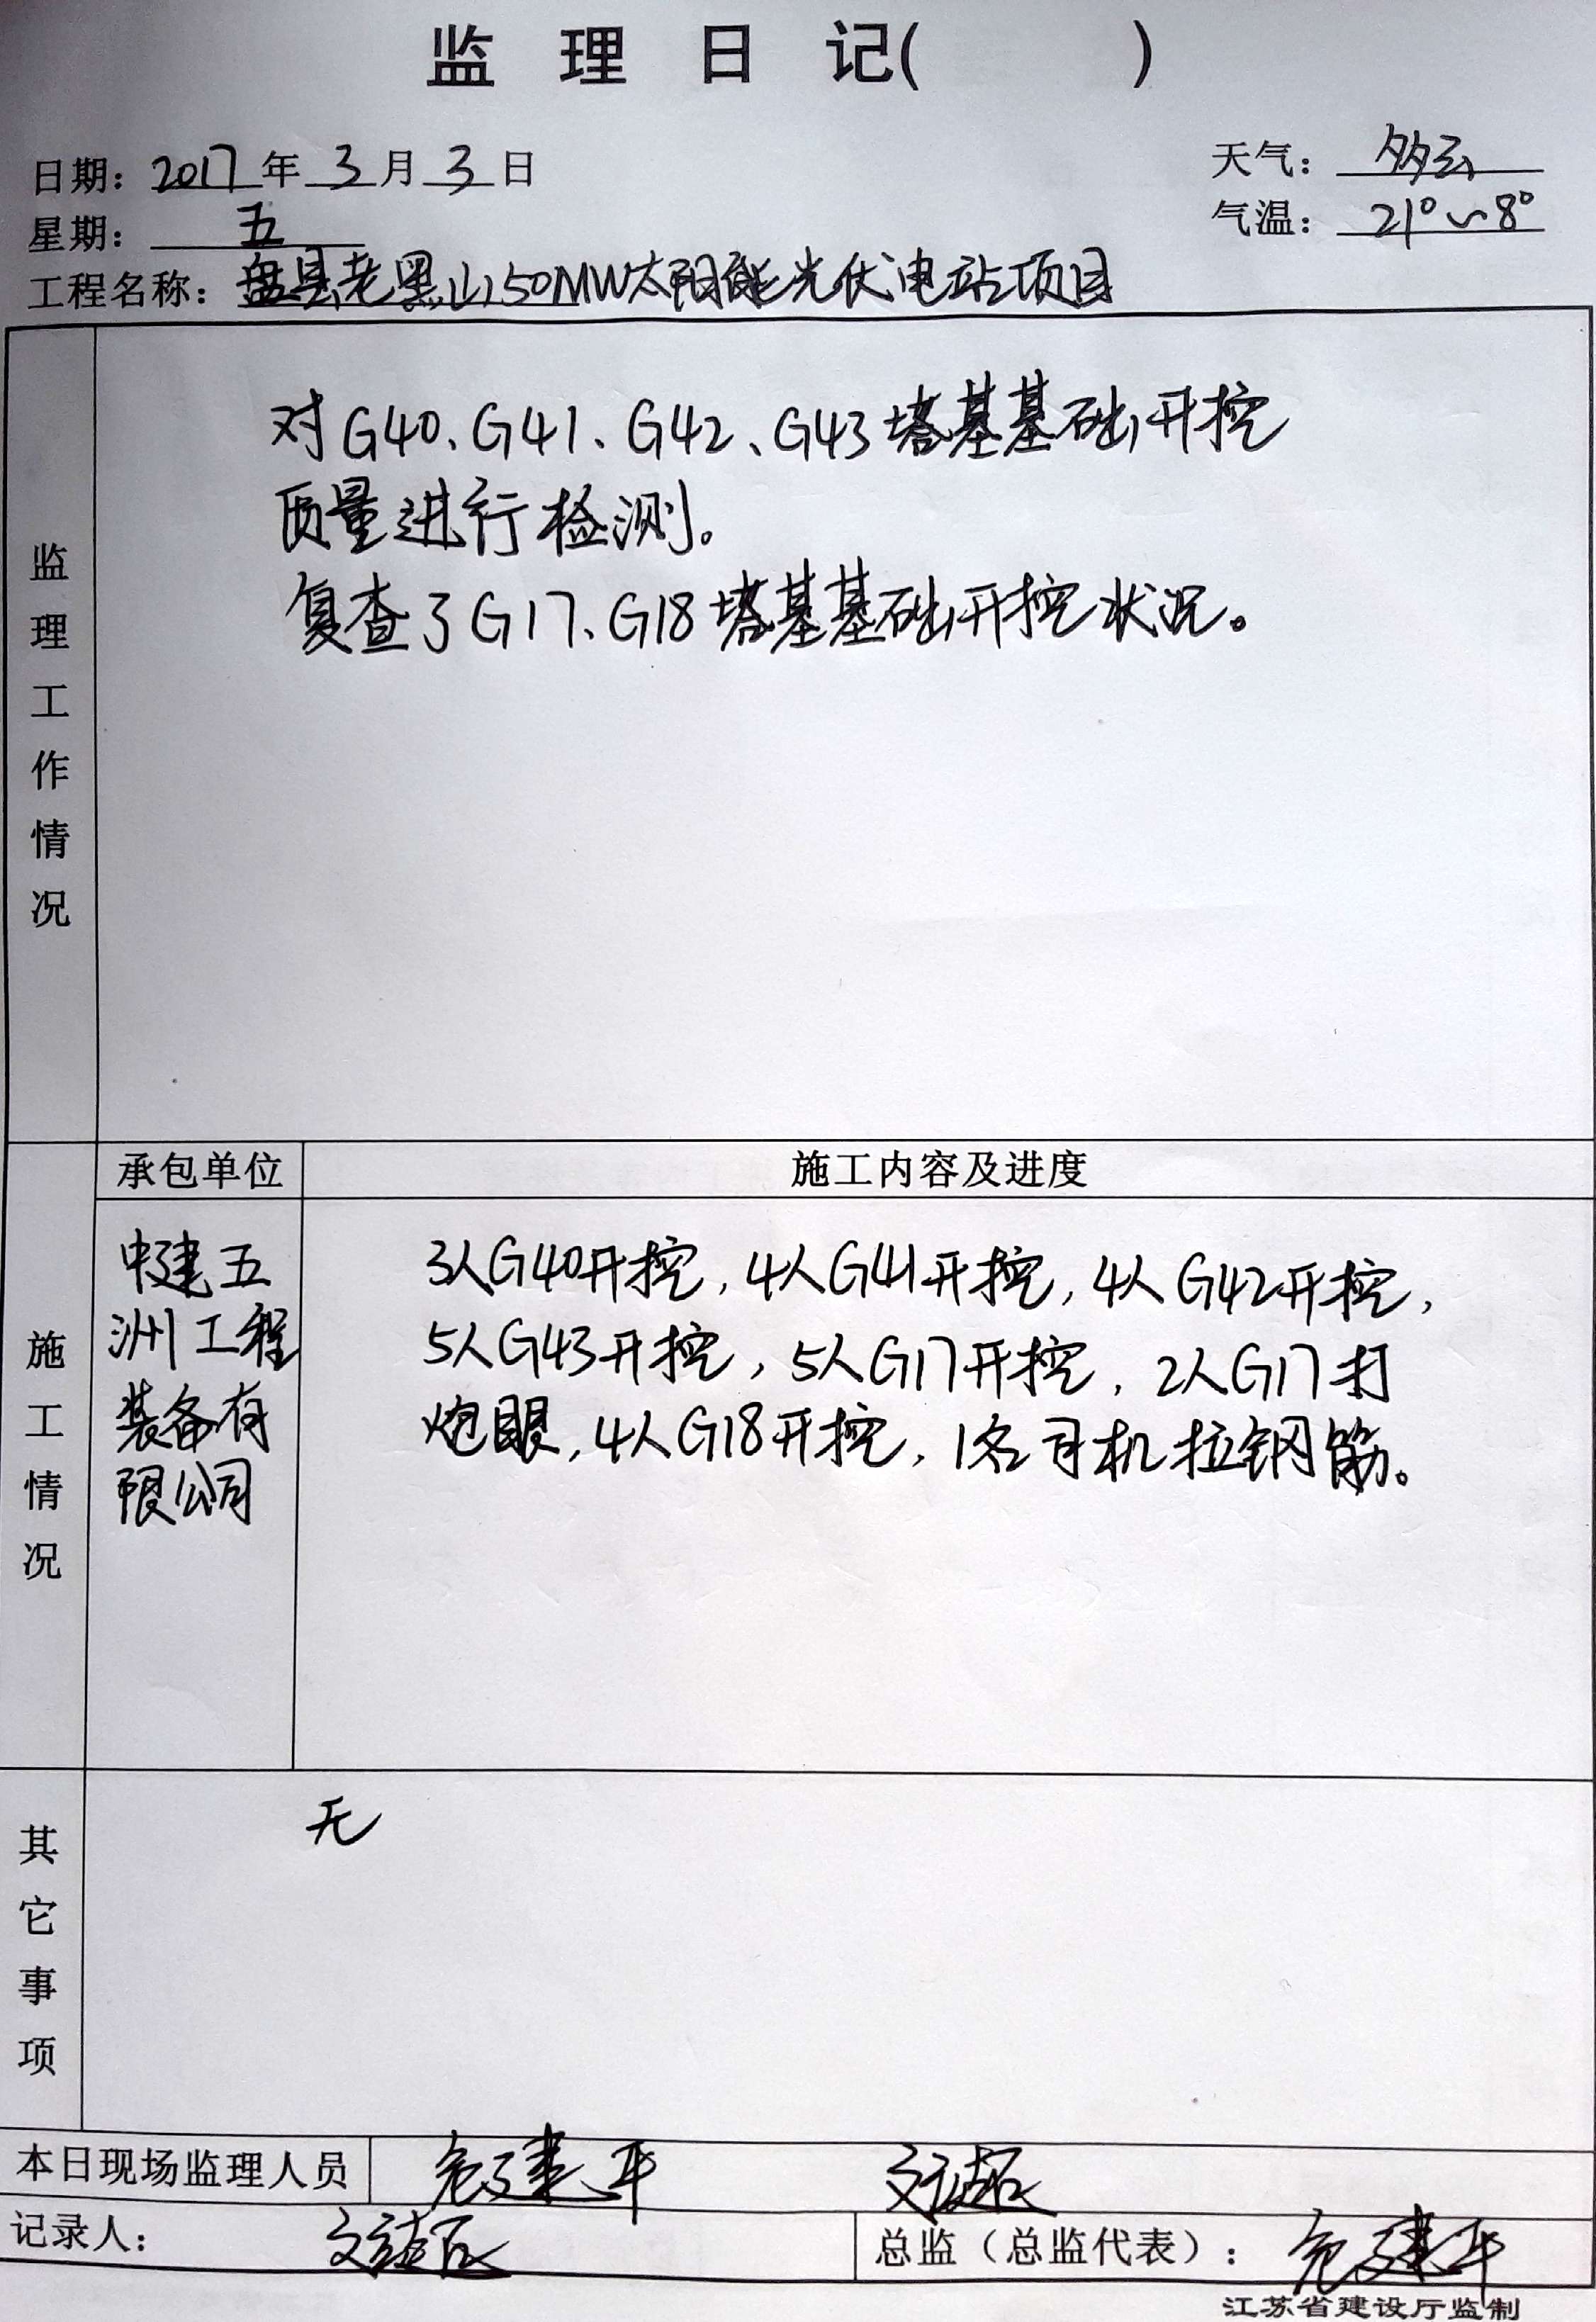 监 理 日 记(    )
日期：2017年3月3日
天气：多云
星期：五
气温：21°~8°
工程名称：盘县老黑山50MW太阳能光伏电站项目
监理工作情况
对G40、G41、G42、G43塔基基础开挖
质量进行检测。
复查了G17、G18塔基基础开挖状况。
施工情况
承包单位
施工内容及进度
中建五
洲工程
装备有
限公司
3人G40开挖，4人G41开挖，4人G42开挖，
5人G43开挖，5人G17开挖，2人G17打
炮眼，4人G18开挖，1名司机拉钢筋。
其它事项
无
本日现场监理人员 危建平
记录人：
总监（总监代表）：危建平
江苏省建设厅监制